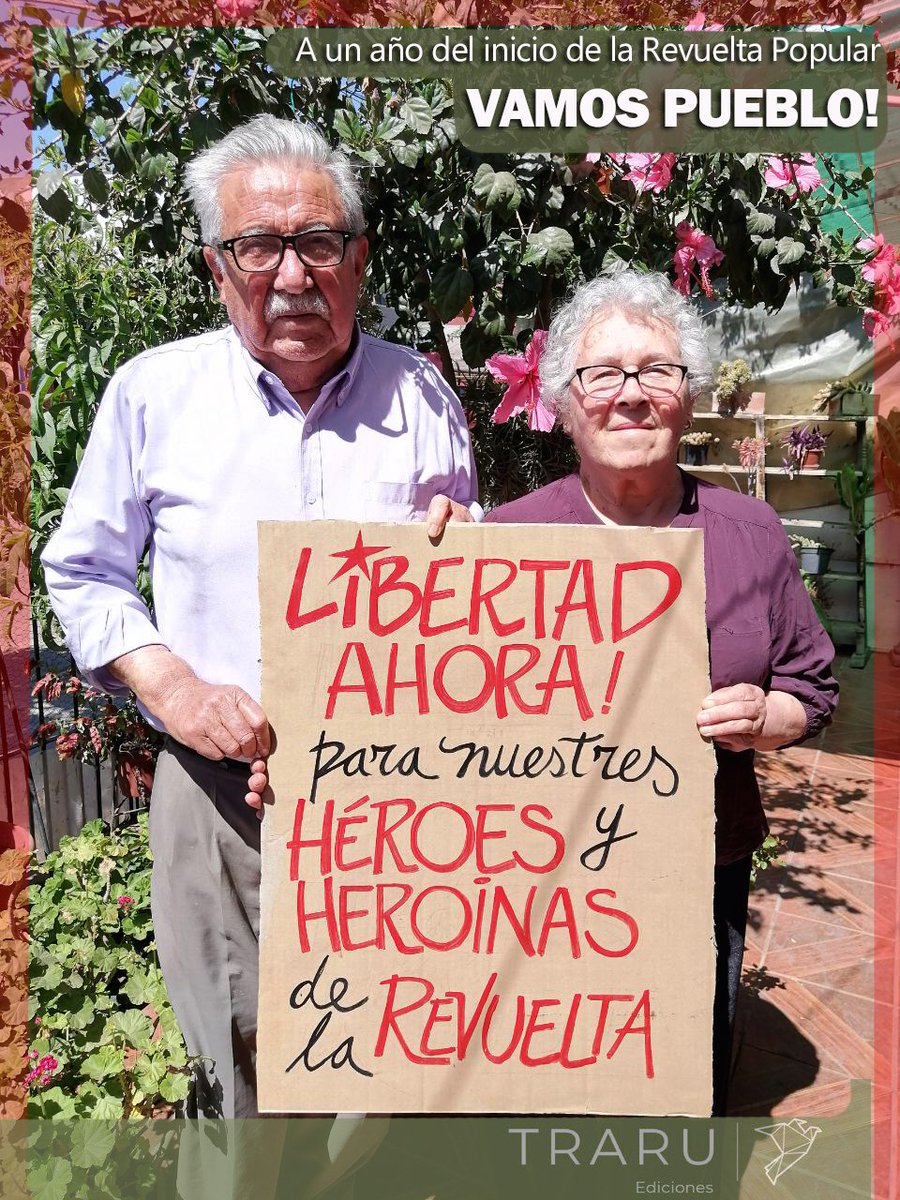 A un año del inicio de la Revuelta Popular
VAMOS PUEBLO!
LIBERTAD
AHORA!
para nuestres
HÉROES y
HEROINAS
de
la REVUELTA
TRARU
Ediciones